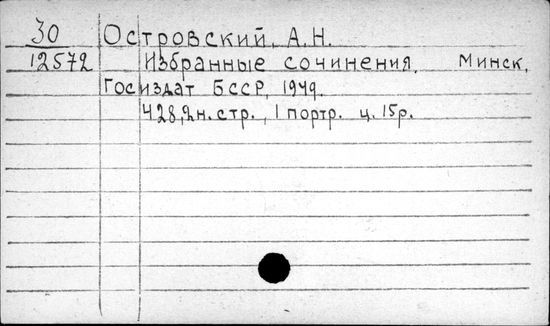 30 Островский, А.Н.
12572 Избранные сочинения. Минск,
Госиздат БССР, 1949.
428,2н.стр., 1 портр. ц. 15р.